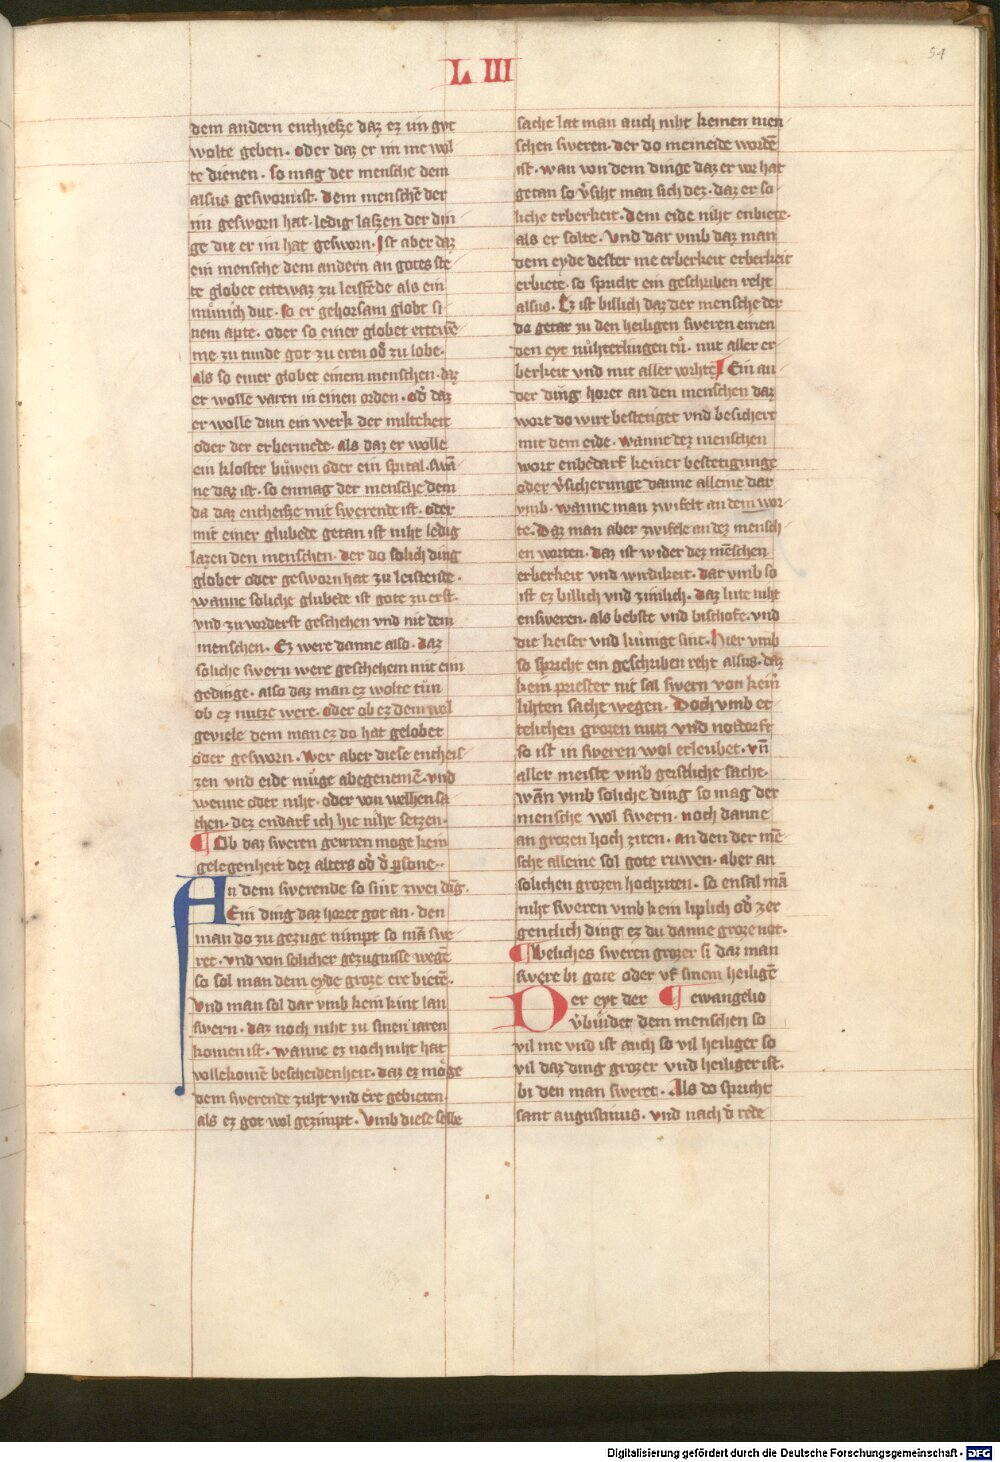 L III
54
dem andern enthieze daz ez im gut
wolte geben · oder daz er im me wol
te dienen · so mag der mensche dem
alsus geswornist · dem menschē der
im gesworn hat · ledig lazen der din
ge die er im hat gesworn · Ist aber daz
ein mensche dem andern an gotes ste
te globet ettewaz zu leistēde als ein
münich dut · so er gehorsam globt si
nem apte · oder so einer globet ettewē
me zu tunde got zu eren od̄ zu lobe ·
als so einer globet einem menschen · daz
er wolle varen in einen orden · od̄ daz
er wolle dun ein werk der miltekeit
oder der erbermede · als daz er wolle
ein kloster bůwen oder ein spital · swā
ne daz ist · so enmag der mensche dem
da daz entheize mit swerende ist · oder
mit einer glubede getan ist niht ledig
lazen den menschen · der do solich ding
globet oder gesworn hat zu leistende ·
wanne soliche glubede ist gote zu erst ·
vnd zu vorderst geschehen vnd nit dem
menschen · Ez were danne also · daz
soliche swern were geschehem mit eim
gedinge · also daz man ez wolte tůn
ob ez nutze were · oder ob ez dem wol
geviele dem man ez do hat gelobet
oder gesworn · wer aber diese entheis
zen vnd eide můge abegenemē · vnd
wenne oder niht · oder von welhen sa
chen · dez endarf ich hie niht setzen ·
¶ Ob daz sweren geirren moge kein
gelegenheit dez alters od̄ d̄ psone ··
An dem swerende so sint zwei dīg ·
Ein ding daz horet got an · den
man do zu gezuge nimpt so mā swe
ret · vnd von solicher gezugnisse wegē
so sol man dem eyde groze ere bietē ·
vnd man sol dar vmb kein kint lan
swern · daz noch niht zu sinen iaren
komen ist · wanne ez noch niht hat
vollekomē bescheidenheit · daz ez möge
dem swerende zuht vnd ere gebieten ·
als ez got wol gezimpt · vmb diese selbe
sache lat man auch niht keinen men
schen sweren · der do meineide wordē
ist · wan von dem dinge daz er vor hat
getan so v̄siht man sich dez · daz er so
liche erberkeit · dem eide niht enbiete ·
als er solte · vnd dar vmb daz man
dem eyde dester me erberkeit erberkeit
erbiete · so spricht ein geschriben reht
alsus · Ez ist billich daz der mensche der
do getar zu den heiligen sweren einen
den eyt nůhterlingen tů · mit aller er
berkeit vnd mit aller vorhte ¶ Ein an
der ding horet an den menschen daz
wort do wirt bestetiget vnd besichert
mit dem eide · wanne dez menschen
wort enbedarf keiner bestetigunge
oder v̄sicherunge danne alleine dar
vmb · wanne man zwifelt an dem wor
te · Daz man aber zwifele an dez mensch
en worten · daz ist wider dez mēschen
erberkeit vnd wirdikeit · dar vmb so
ist ez billich vnd zimlich · daz lute niht
ensweren · als bebste vnd bischofe · vnd
die keiser vnd kůnige sint · hier vmb
so spricht ein geschriben reht alsus · daz
kein priester nit sal swern von kein̄
lihten sache wegen · Doch vmb et
telichen grozen nutz vnd notdorft
so ist in sweren wol erleubet · vn̄
aller meiste vmb geistliche sache ·
wān vmb soliche ding so mag der
mensche wol swern · noch danne
an grozen hoch ziten · an den der mē
sche alleine sol gote ruwen · aber an
solichen grozen hochziten · so ensal mā
niht sweren vmb kein liplich od̄ zer
genclich ding ez du danne groze not ·
¶ Weliches sweren grozer si daz man
swere bi gote oder vf sinem heiligē
Der eyt der ¶ ewangelio
v̄bindet dem menschen so
vil me vnd ist auch so vil heiliger so
vil daz ding grozer vnd heiliger ist ·
bi den man sweret · Als do spricht
sant augustinus · vnd nach d̄ rede
Digitalisierung gefördert durch die Deutsche Forschungsgemeinschaft - DFG